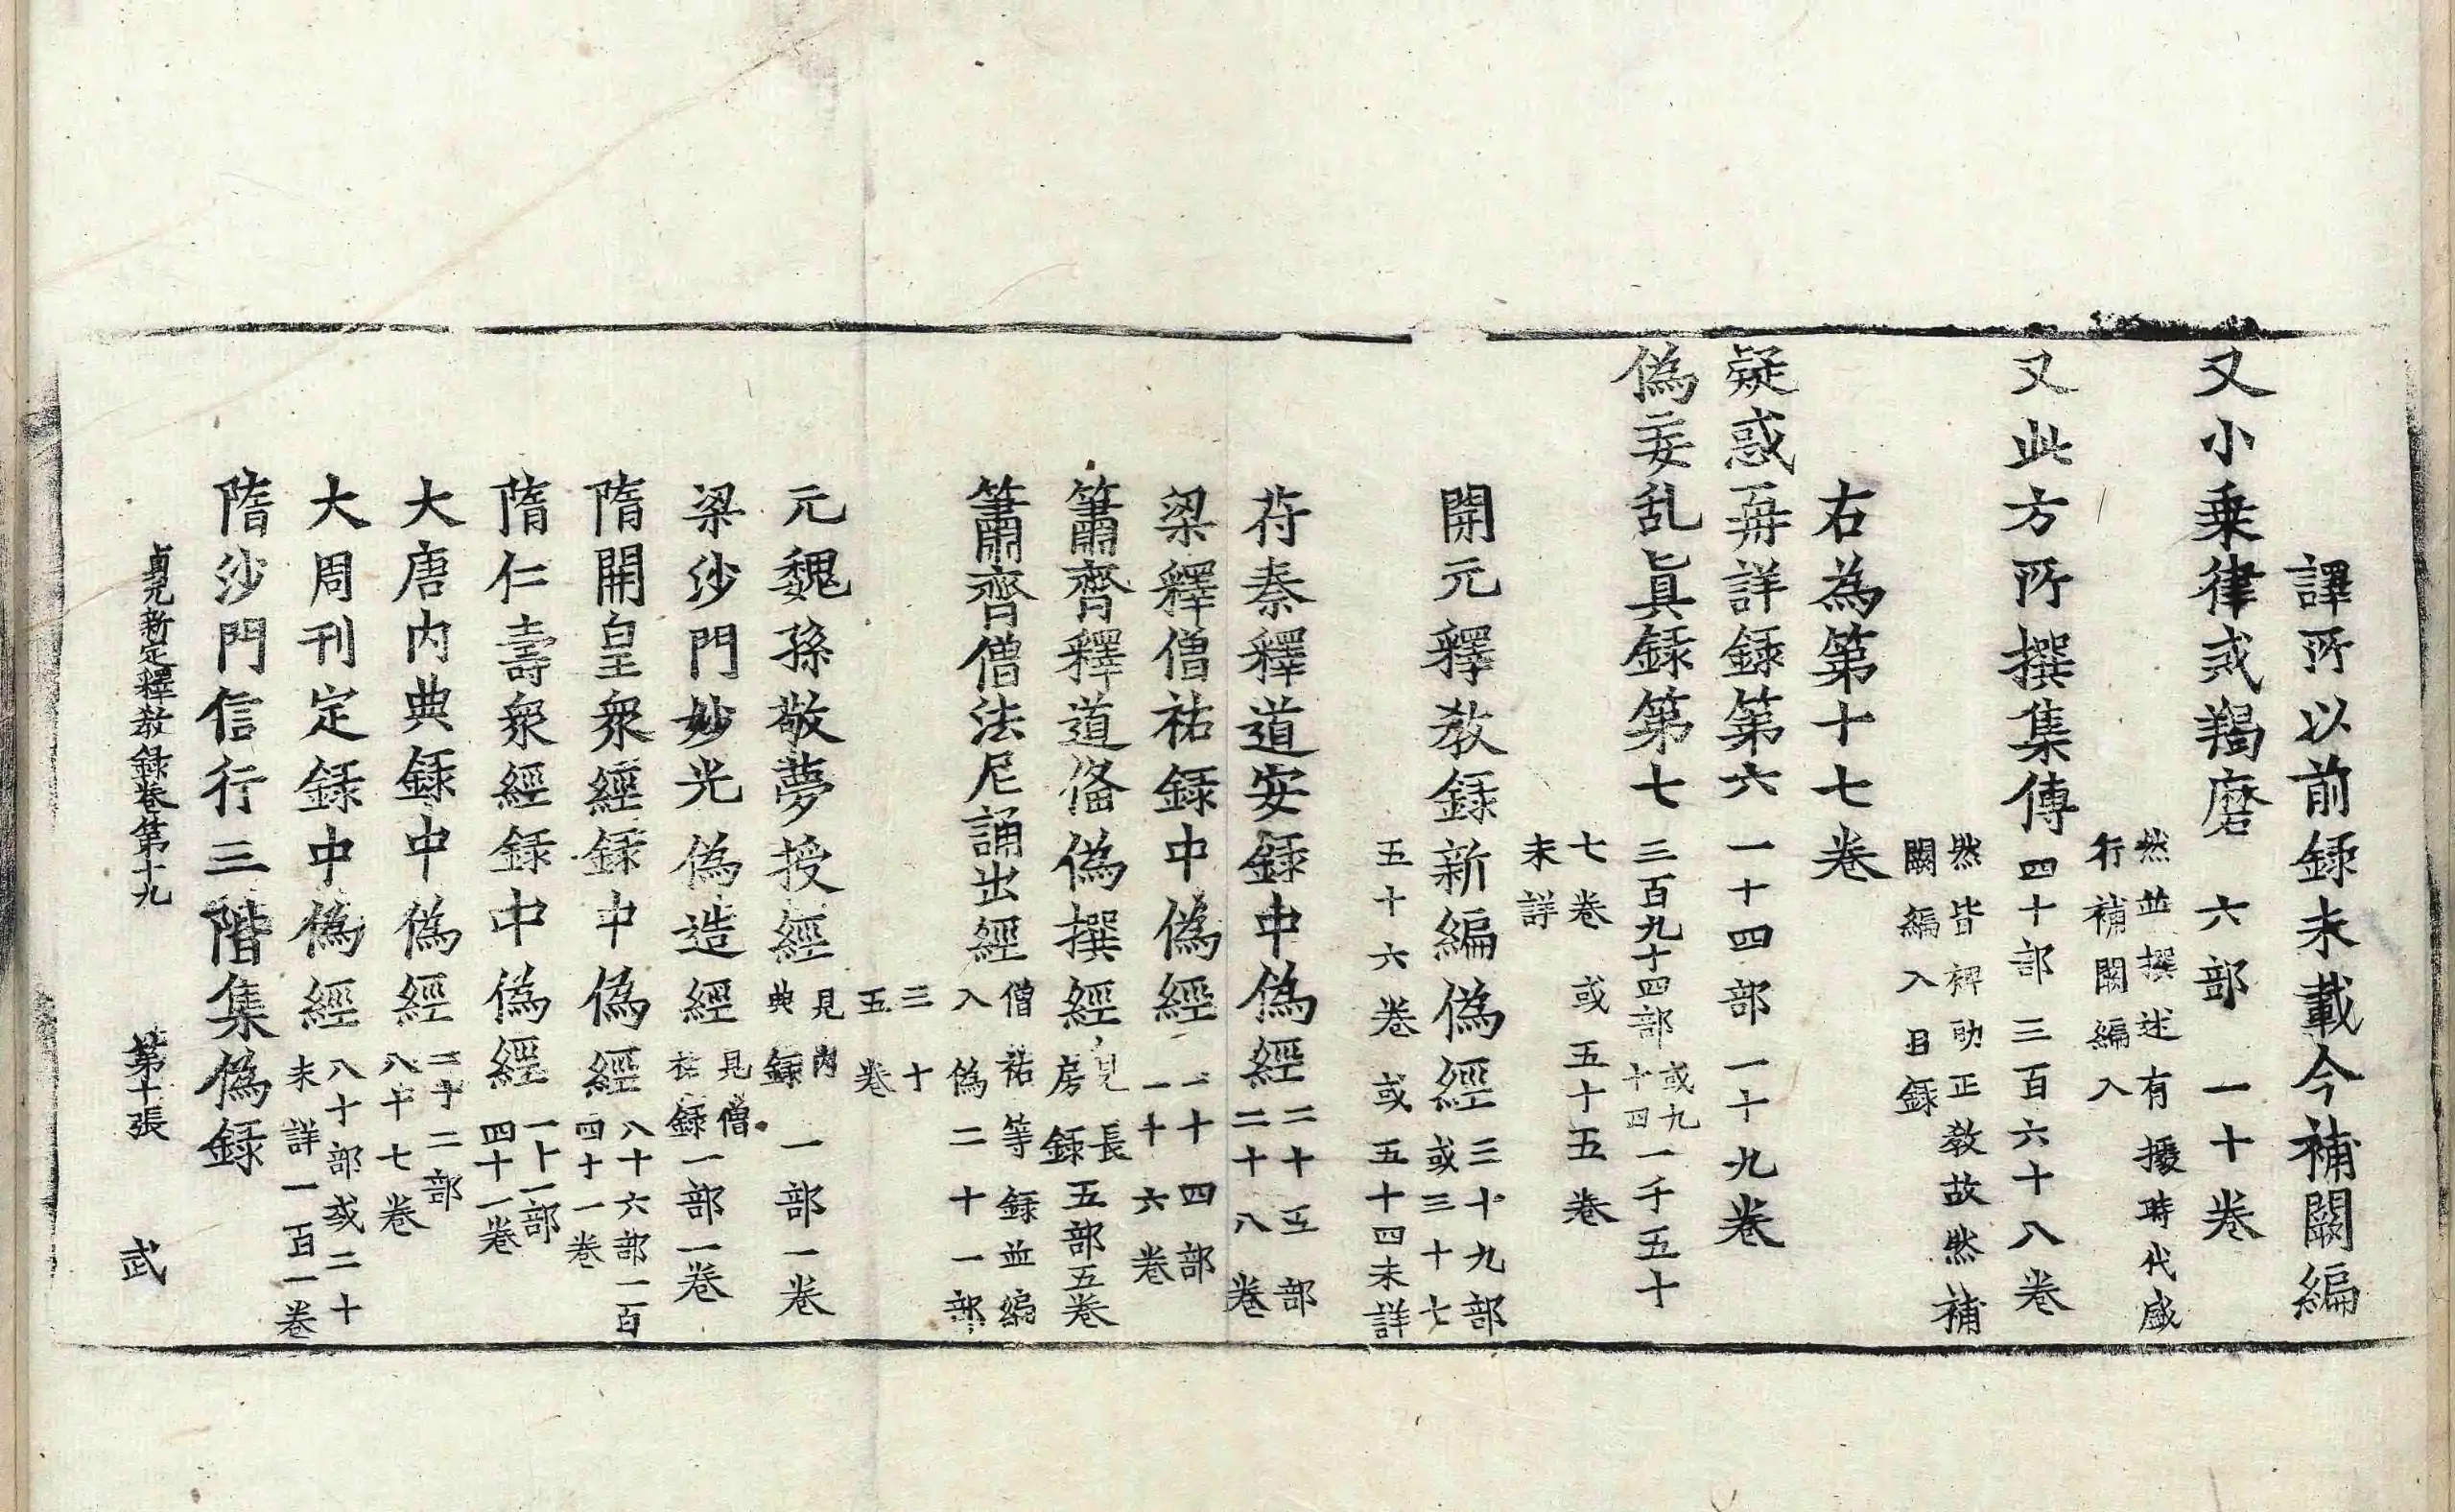 譯所以前録未載今補闕編
又小乗律或羯磨六部一十巻
然並撰述有據時代咸
行補闕編入
又此方所撰集傳四十部三百六十八巻
然皆裨助正敎故然補
闕編入目録
右為第十七巻
疑惑再詳録第六一十四部一十九巻
偽妄乱真録第七三百九十四部或九十四一千五十
七巻或五十五巻
未詳
開元釋敎録新編偽經三十九部或三十七
五十六巻或五十四未詳
苻秦釋道安録中偽經二十五部二十八巻
梁釋僧祐録中偽經二十四部一十六巻
簫齊釋道俻偽撰經見長房録五部五巻
簫齊僧法尼誦出經僧祐等録並編入偽二十一部
三十五巻
元魏孫敬夢授經見内典録一部一巻
梁沙門妙光偽造經見僧祐録一部一巻
隋開皇衆經録中偽經八十六部一百四十一巻
隋仁壽衆經録中偽經一十一部四十一巻
大唐内典録中偽經二十二部八十七巻
大周刊定録中偽經八十部或二十未詳一百一巻
隋沙門信行三階集偽録
貞元新定釋敎録巻第十九 第十張 武